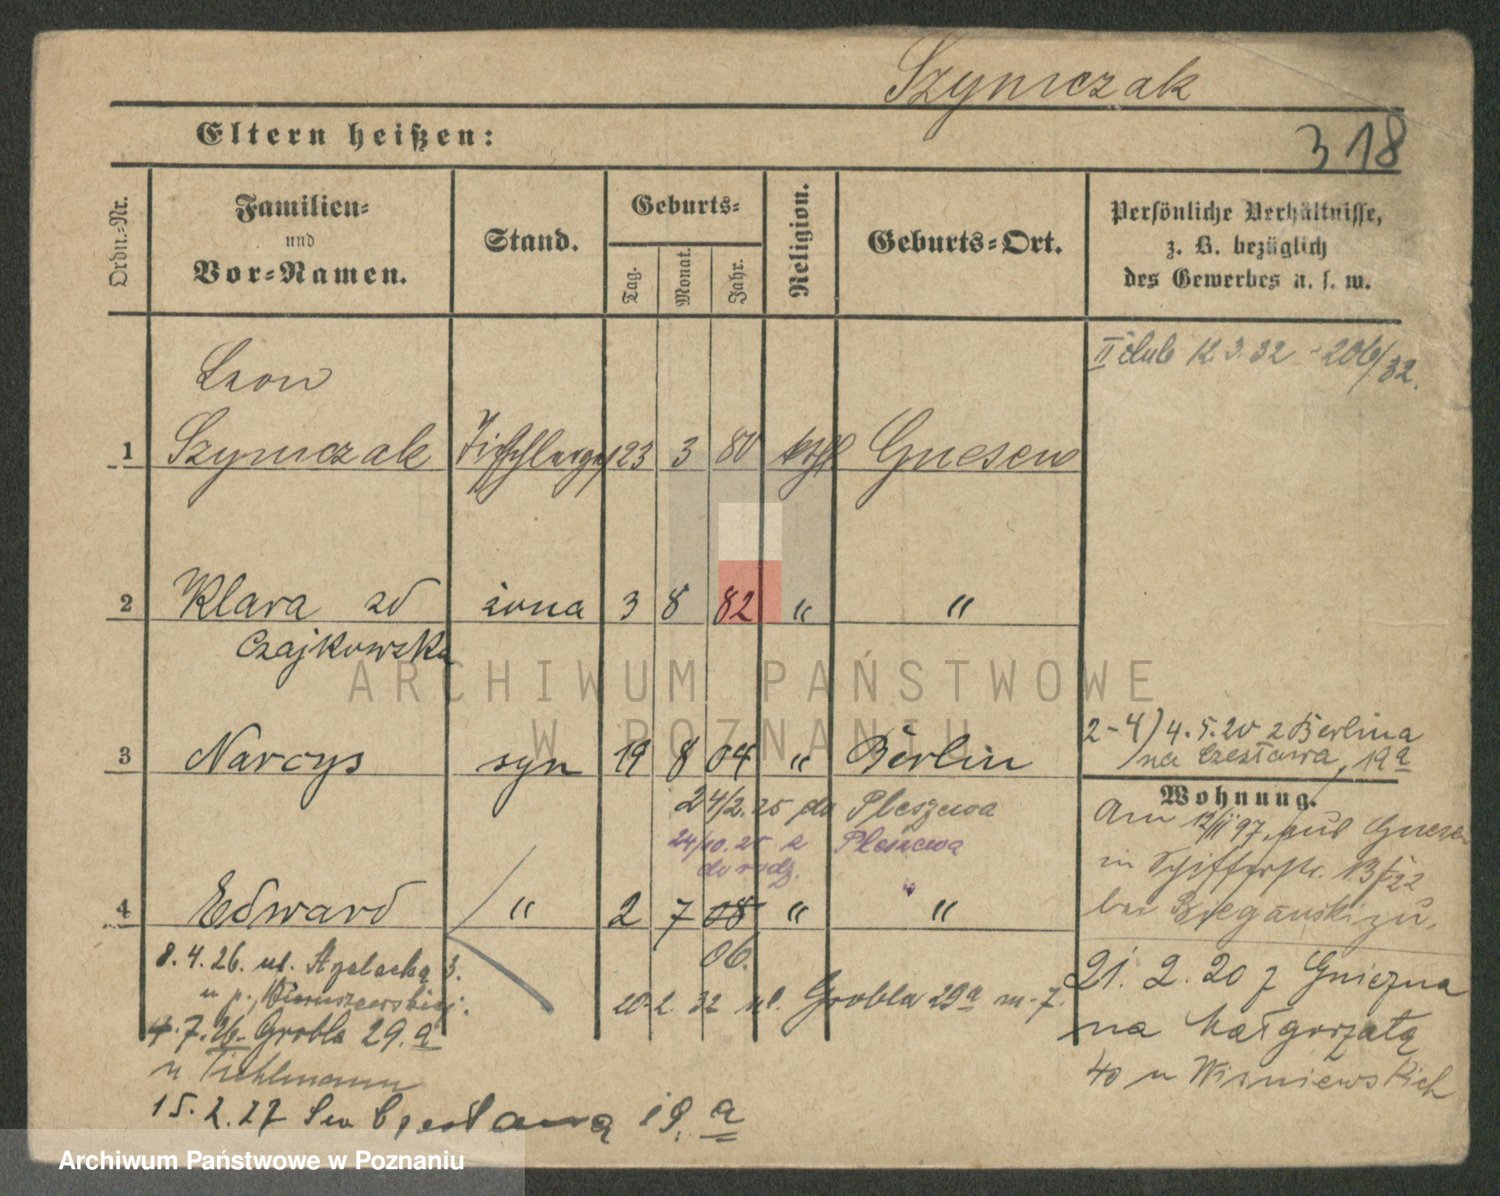 Szymczak
Eltern heißen:
318
Ordn.-Nr.
Familien-
und
Vor-Namen.
Stand.
Geburts-
Tag.
Monat.
Jahr.
Religion.
Geburts-Ort.
Persönliche Verhältnisse,
z. B. bezüglich
des Gewerbes u. s. w.
II ślub 12.3.32 - 206/32.
Leon
1 Szymczak 23 3 80 kath Gnesen
2 Klara zd żona 3 8 82 " "
Czajkowska
ARCHIWUM PAŃSTWOWE
W POZNANIU
3 Narcys syn 19 8 04 " Berlin
2-4) 4.5.20 z Berlina
na Czesława, 19a
24/2.25 do Pleszewa
24/10.25 z Pleszewa
do rodz.
Wohnung.
Am 12/11 97 aus Gnesen
in Schifferstr. 13 I 22
bei
4 Edward " 2 7 08 " "
06.
8.4.26. ul. Strzelecka 3.
u p.
20.2.32 ul. Grobla 29a m-7.
21.2.20 z Gniezna
na Małgorzatą
40 u Wiśniewskich
4.7.26. Grobla 29.a
u Tichlmann
15.2.27 Św Czesławą 19.a
Archiwum Państwowe w Poznaniu